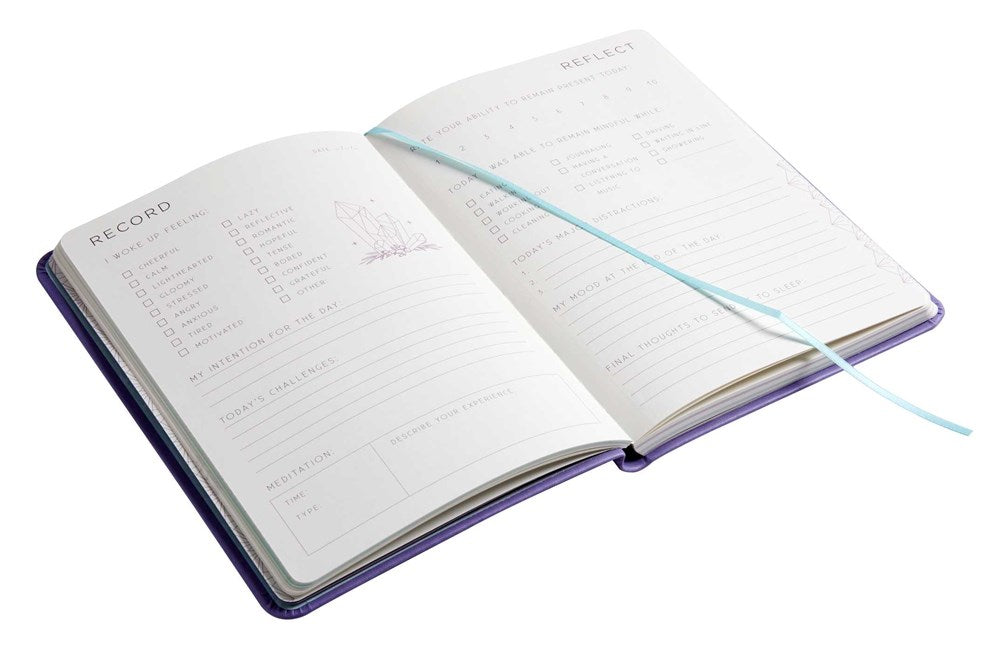 RECORD
DATE
I WOKE UP FEELING:
CHEERFUL
CALM
LIGHTHEARTED
GLOOMY
STRESSED
ANGRY
ANXIOUS
TIRED
MOTIVATED
LAZY
REFLECTIVE
ROMANTIC
HOPEFUL
TENSE
BORED
CONFIDENT
GRATEFUL
OTHER
MY INTENTION FOR THE DAY:
TODAY'S CHALLENGES:
MEDITATION:
TIME:
TYPE:
DESCRIBE YOUR EXPERIENCE
REFLECT
YOUR ABILITY TO REMAIN PRESENT TODAY
1 2 3 4 5 6 7 8 9 10
TODAY WAS ABLE TO REMAIN MINDFUL WHILE
EATING
COOKING
CLEANING
JOURNALING
HAVING A
CONVERSATION
LISTENING TO
MUSIC
DRIVING
WAITING IN LINE
SHOWERING
TODAY'S DISTRACTIONS:
1.
2.
3.
MY MOOD AT THE END OF THE DAY:
FINAL THOUGHTS TO TO SLEEP